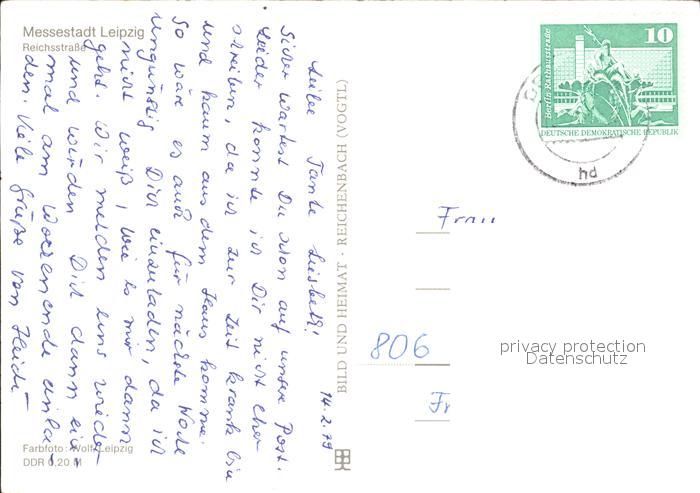 Messestadt Leipzig
Reichsstraße
14.2.79
Liebe Tante Liesbeth!
Sicher wartest Du schon auf unsere Post.
Leider konnte ich Dir nicht eher
schreiben, da ich zur Zeit krank bin
und kaum aus dem Haus komme.
So wäre es auch für nächste Woche
ungünstig Dich einzuladen, da ich
nicht weiß, wie es mir dann
geht. Wir melden uns wieder
und würden Dich dann ein-
mal am Wochenende einla-
den. Viele Grüße von Heidi
Farbfoto: Wolf, Leipzig
DDR 0,20 M
BILD UND HEIMAT · REICHENBACH (VOGTL)
10
Berlin-Rathausstraße
DEUTSCHE DEMOKRATISCHE REPUBLIK
hd
Frau
806
Fr
privacy protection
Datenschutz